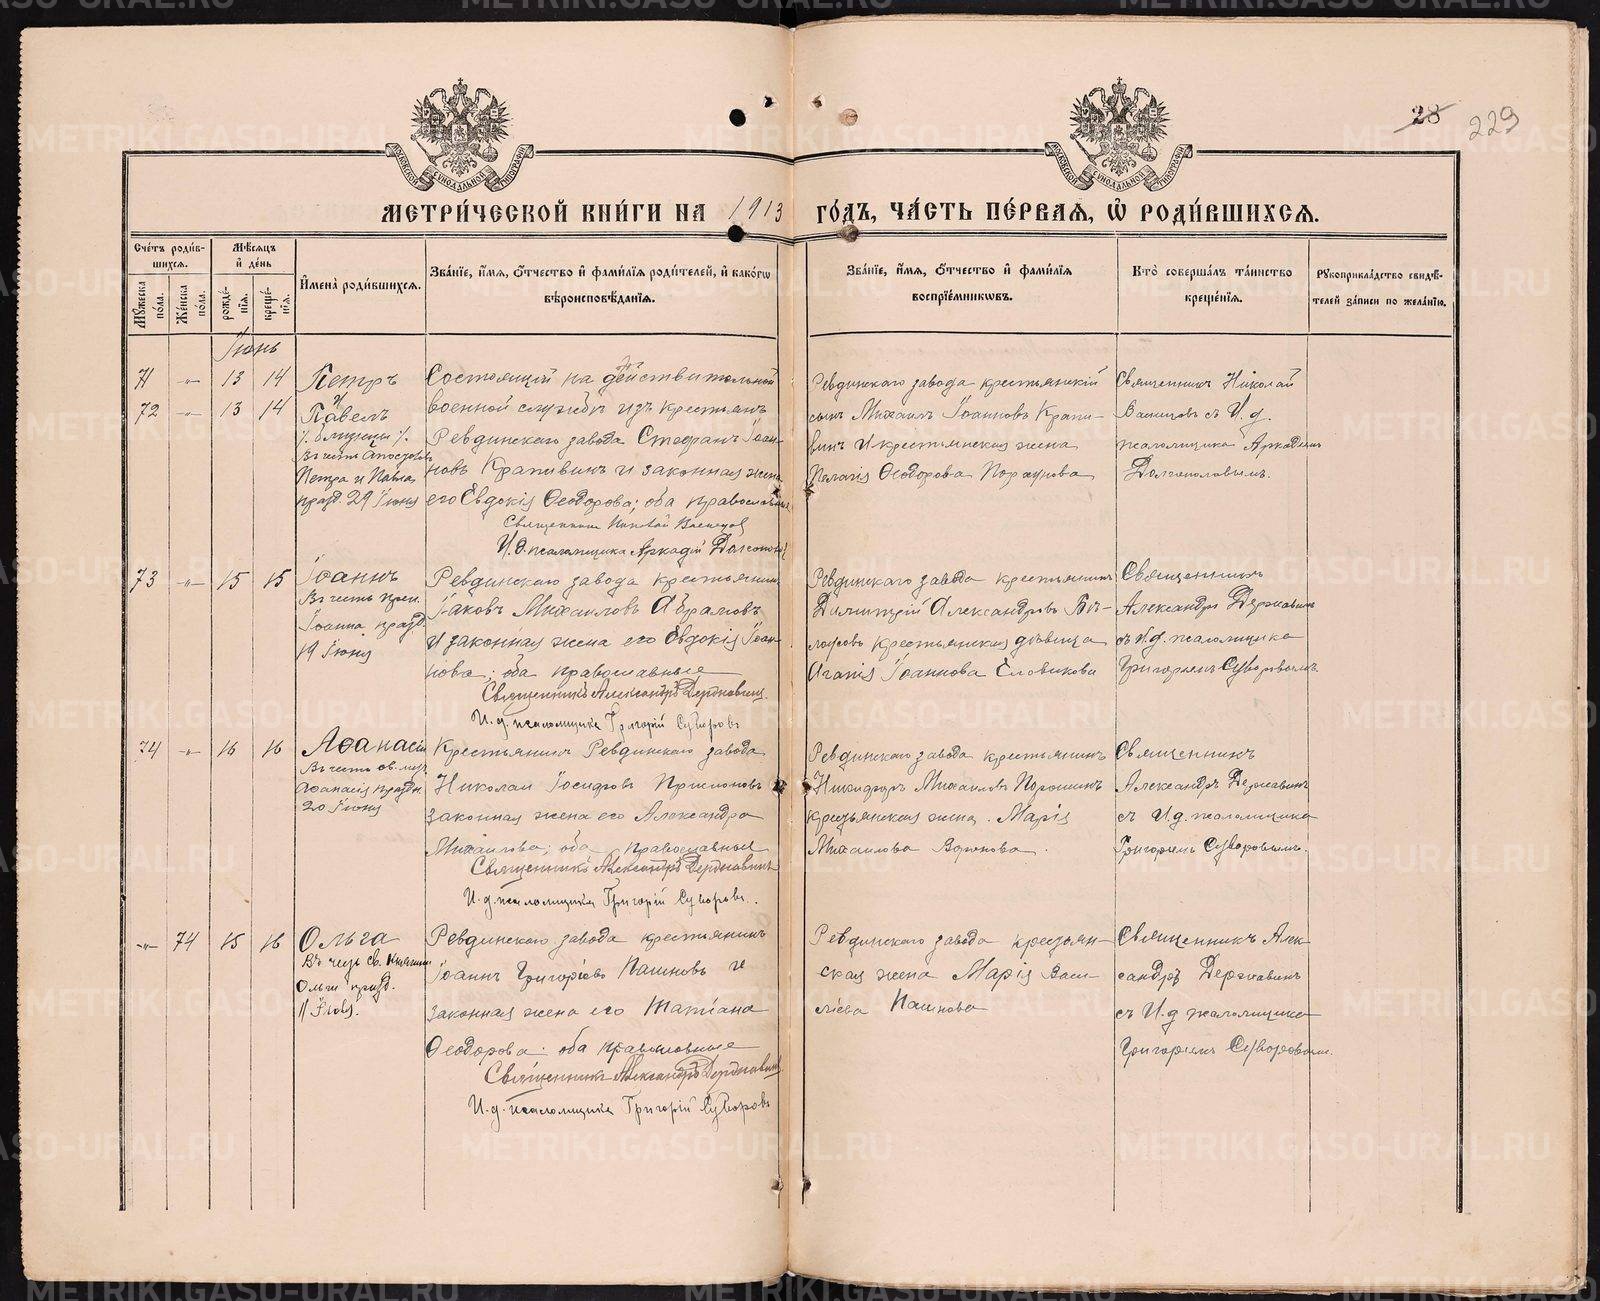 28 229
МЕТРИЧЕСКОЙ КНИГИ НА 1913 ГОДЪ, ЧАСТЬ ПЕРВАЯ, Ѡ РОДИВШИХСЯ.
Счетъ родившихся.
Мужеска пола.
Женска пола.
Мѣсяцъ и день
рожденія.
крещенія.
Имена родившихся.
Званіе, имя, отчество и фамилія родителей, и какого
вѣроисповѣданія.
Званіе, имя, отчество и фамилія
воспріемниковъ.
Кто совершалъ таинство
крещенія.
Рукоприкладство свидѣ-
телей записи по желанію.
Іюнь
71 -"- 13 14
72 -"- 13 14
Петръ
и
Павелъ
/. близнецы /.
Въ честь Апостоловъ
Петра и Павла
празд. 29 Іюня
Состоящій на дѣйствительной
военной службѣ изъ крестьянъ
Ревдинскаго завода Стефанъ Іоан-
новъ Крапивинъ и законная жена
его Евдокія Ѳеодорова; оба православные
Священникъ Николай
И. д. псаломщика Аркадій
Ревдинскаго завода крестьянскій
сынъ Михаилъ Іоанновъ Крапи-
винъ и крестьянская жена
Пелагія Ѳеодорова
Священникъ Николай
съ И. д.
псаломщика Аркадіемъ
73 -"- 15 15
Іоаннъ
Въ честь преп.
Іоанна празд.
19 Іюня
Ревдинскаго завода крестьянинъ
Іаковъ Михаиловъ Абрамовъ
и законная жена его Евдокія Іоан-
нова; оба православные
Священникъ Александръ Державинъ
И. д. псаломщика Григорій Суворовъ
Ревдинскаго завода крестьянинъ
Димитрій Александровъ Бѣ-
крестьянская дѣвица
Іоаннова Словикова
Священникъ
Александръ Державинъ
съ И. д. псаломщика
Григоріемъ Суворовымъ
74 -"- 16 16
Аѳанасій
Въ честь св. муч.
Аѳанасія праздн.
20 Іюня
Крестьянинъ Ревдинскаго завода
Николай Іосифовъ
законная жена его Александра
Михаилова; оба православные
Священникъ Александръ Державинъ
И. д. псаломщика Григорій Суворовъ.
Ревдинскаго завода крестьянинъ
Никифоръ Михаиловъ Порошинъ
крестьянская жена. Марія
Михаилова
Священникъ
Александръ Державинъ
съ И. д. псаломщика
Григоріемъ Суворовымъ.
-"- 74 15 16
Ольга
Въ честь св. Княгини
Ольги празд.
11 Іюля.
Ревдинскаго завода крестьянинъ
Іоаннъ Григоріевъ Пашновъ и
законная жена его Татіана
Ѳеодорова; оба православные
Священникъ Александръ Державинъ
И. д. псаломщика Григорій Суворовъ
Ревдинскаго завода крестьян-
ская жена Марія Васи-
ліева Пашнова
Священникъ Алек-
сандръ Державинъ
съ И. д псаломщика
Григоріемъ Суворовымъ.
METRIKI.GASO-URAL.RU